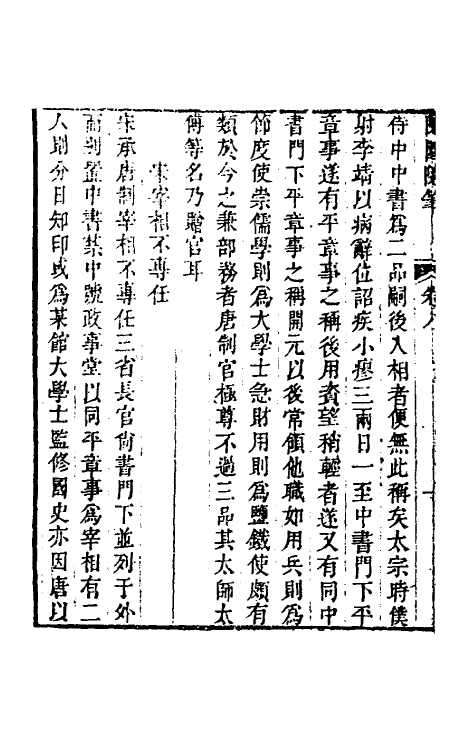 侍中中書為二品嗣後入相者便無此稱矣太宗時僕
射李靖以病辭位詔疾小瘳三兩日一至中書門下平
章事遂有平章事之稱後用資望稍輕者遂又有同中
書門下平章事之稱開元以後常領他職如用兵則為
節度使崇儒學則為大學士急財用則為鹽鐵使頗有
類於今之兼部務者唐制官極尊不過三品其太師太
傅等名乃贈官耳
宋宰相不專任
宋承唐制宰相不專任三省長官尚書門下並列于外
而別置中書禁中號政事堂以同平章事為宰相有二
人則分日知印或為某館大學士監修國史亦因唐以
隨筆
卷八